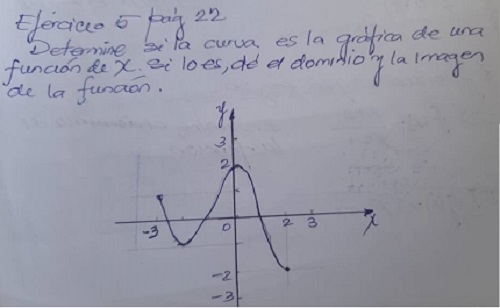 Ejercicio 5 pág 22
Determine si la curva es la gráfica de una
función de x. Si lo es, dé el dominio y la imagen
de la función.
y
3
2
-3 0 2 3 x
-2
-3